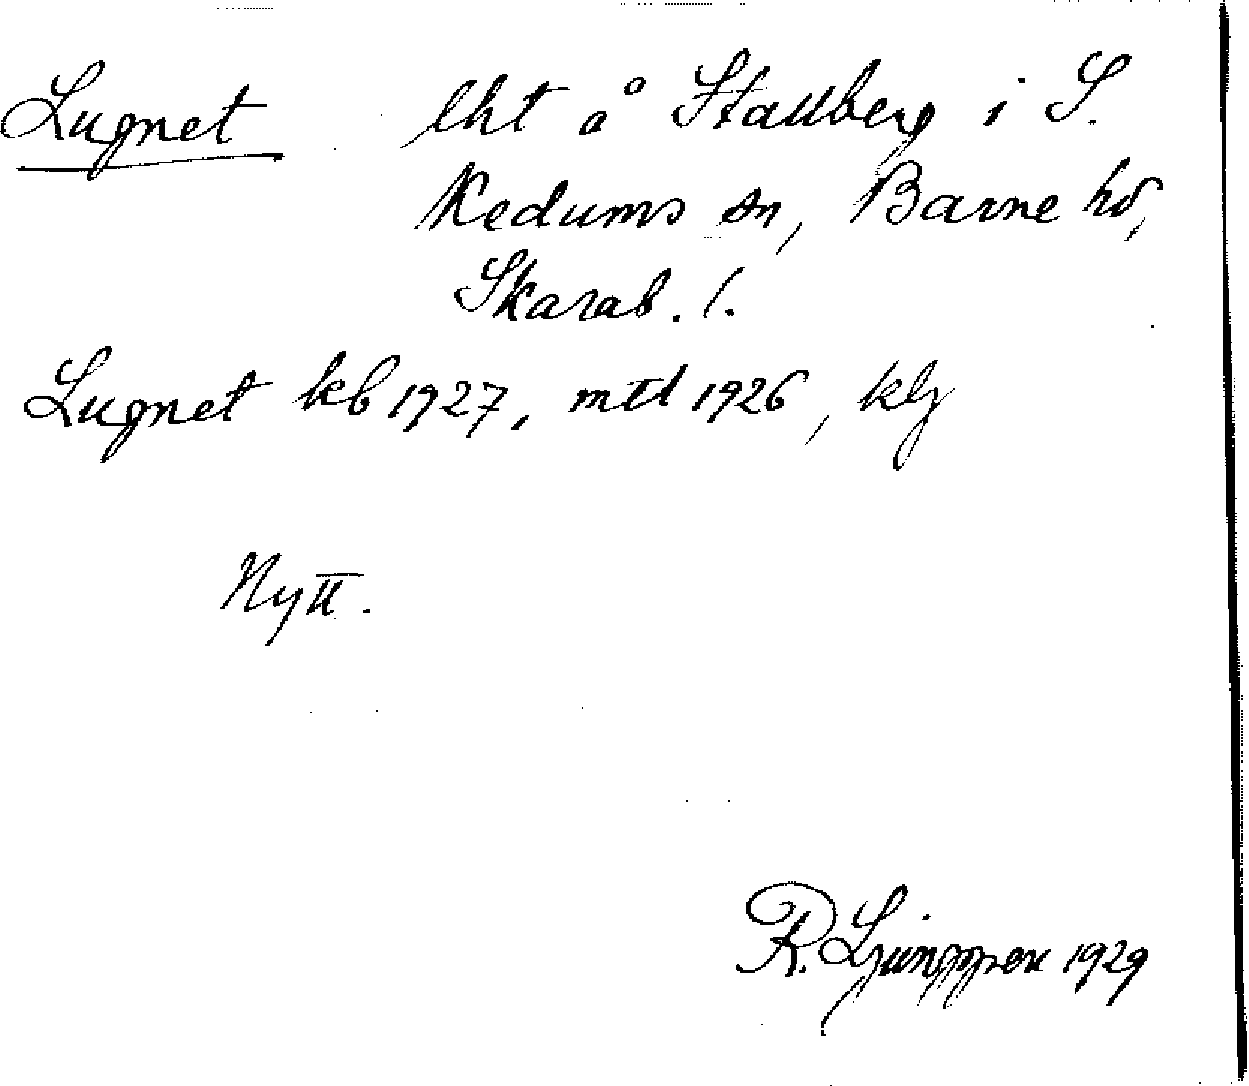 Lugnet lht å Stallberg i S.
Kedums sn, Barne hd,
Skarab. l.
Lugnet kb 1927, mtl 1926, klg
Nytt.
R. Ljunggren 1929